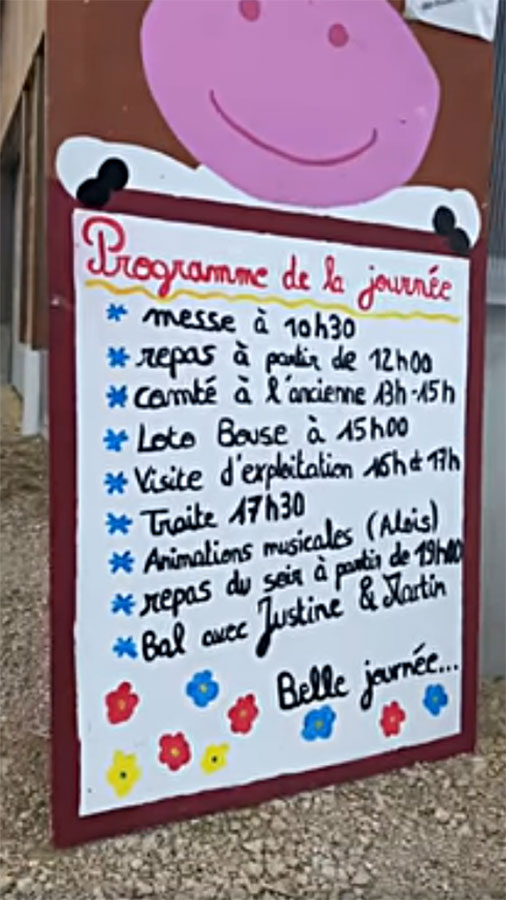 Programme de la journée
* messe à 10h30
* repas à partir de 12h00
* comté à l'ancienne 13h-15h
* Loto Bouse à 15h00
* Visite d'exploitation 16h et 17h
* Traite 17h30
* Animations musicales (Aloïs)
* repas du soir à partir de 19h00
* Bal avec Justine & Martin
Belle journée...